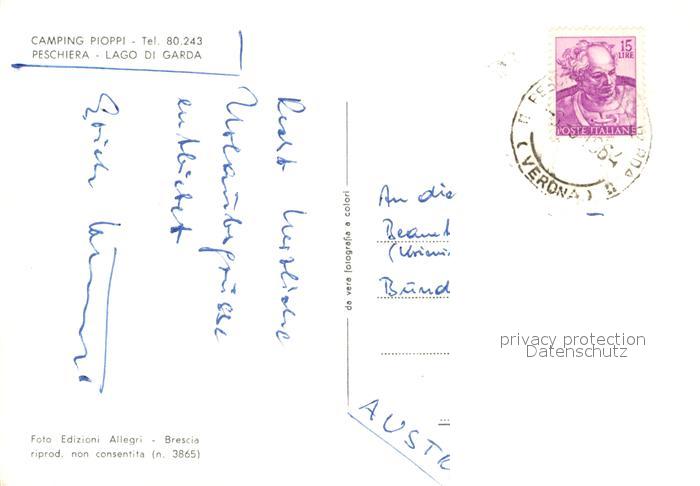 CAMPING PIOPPI - Tel. 80.243
PESCHIERA - LAGO DI GARDA
Recht herzliche
Urlaubsgrüsse
entbietet
Foto Edizioni Allegri - Brescia
riprod. non consentita (n. 3865)
da vera fotografia a colori
15
LIRE
POSTE ITALIANE
(VERONA)
An die
Beamt
Bund
AUSTR
privacy protection
Datenschutz